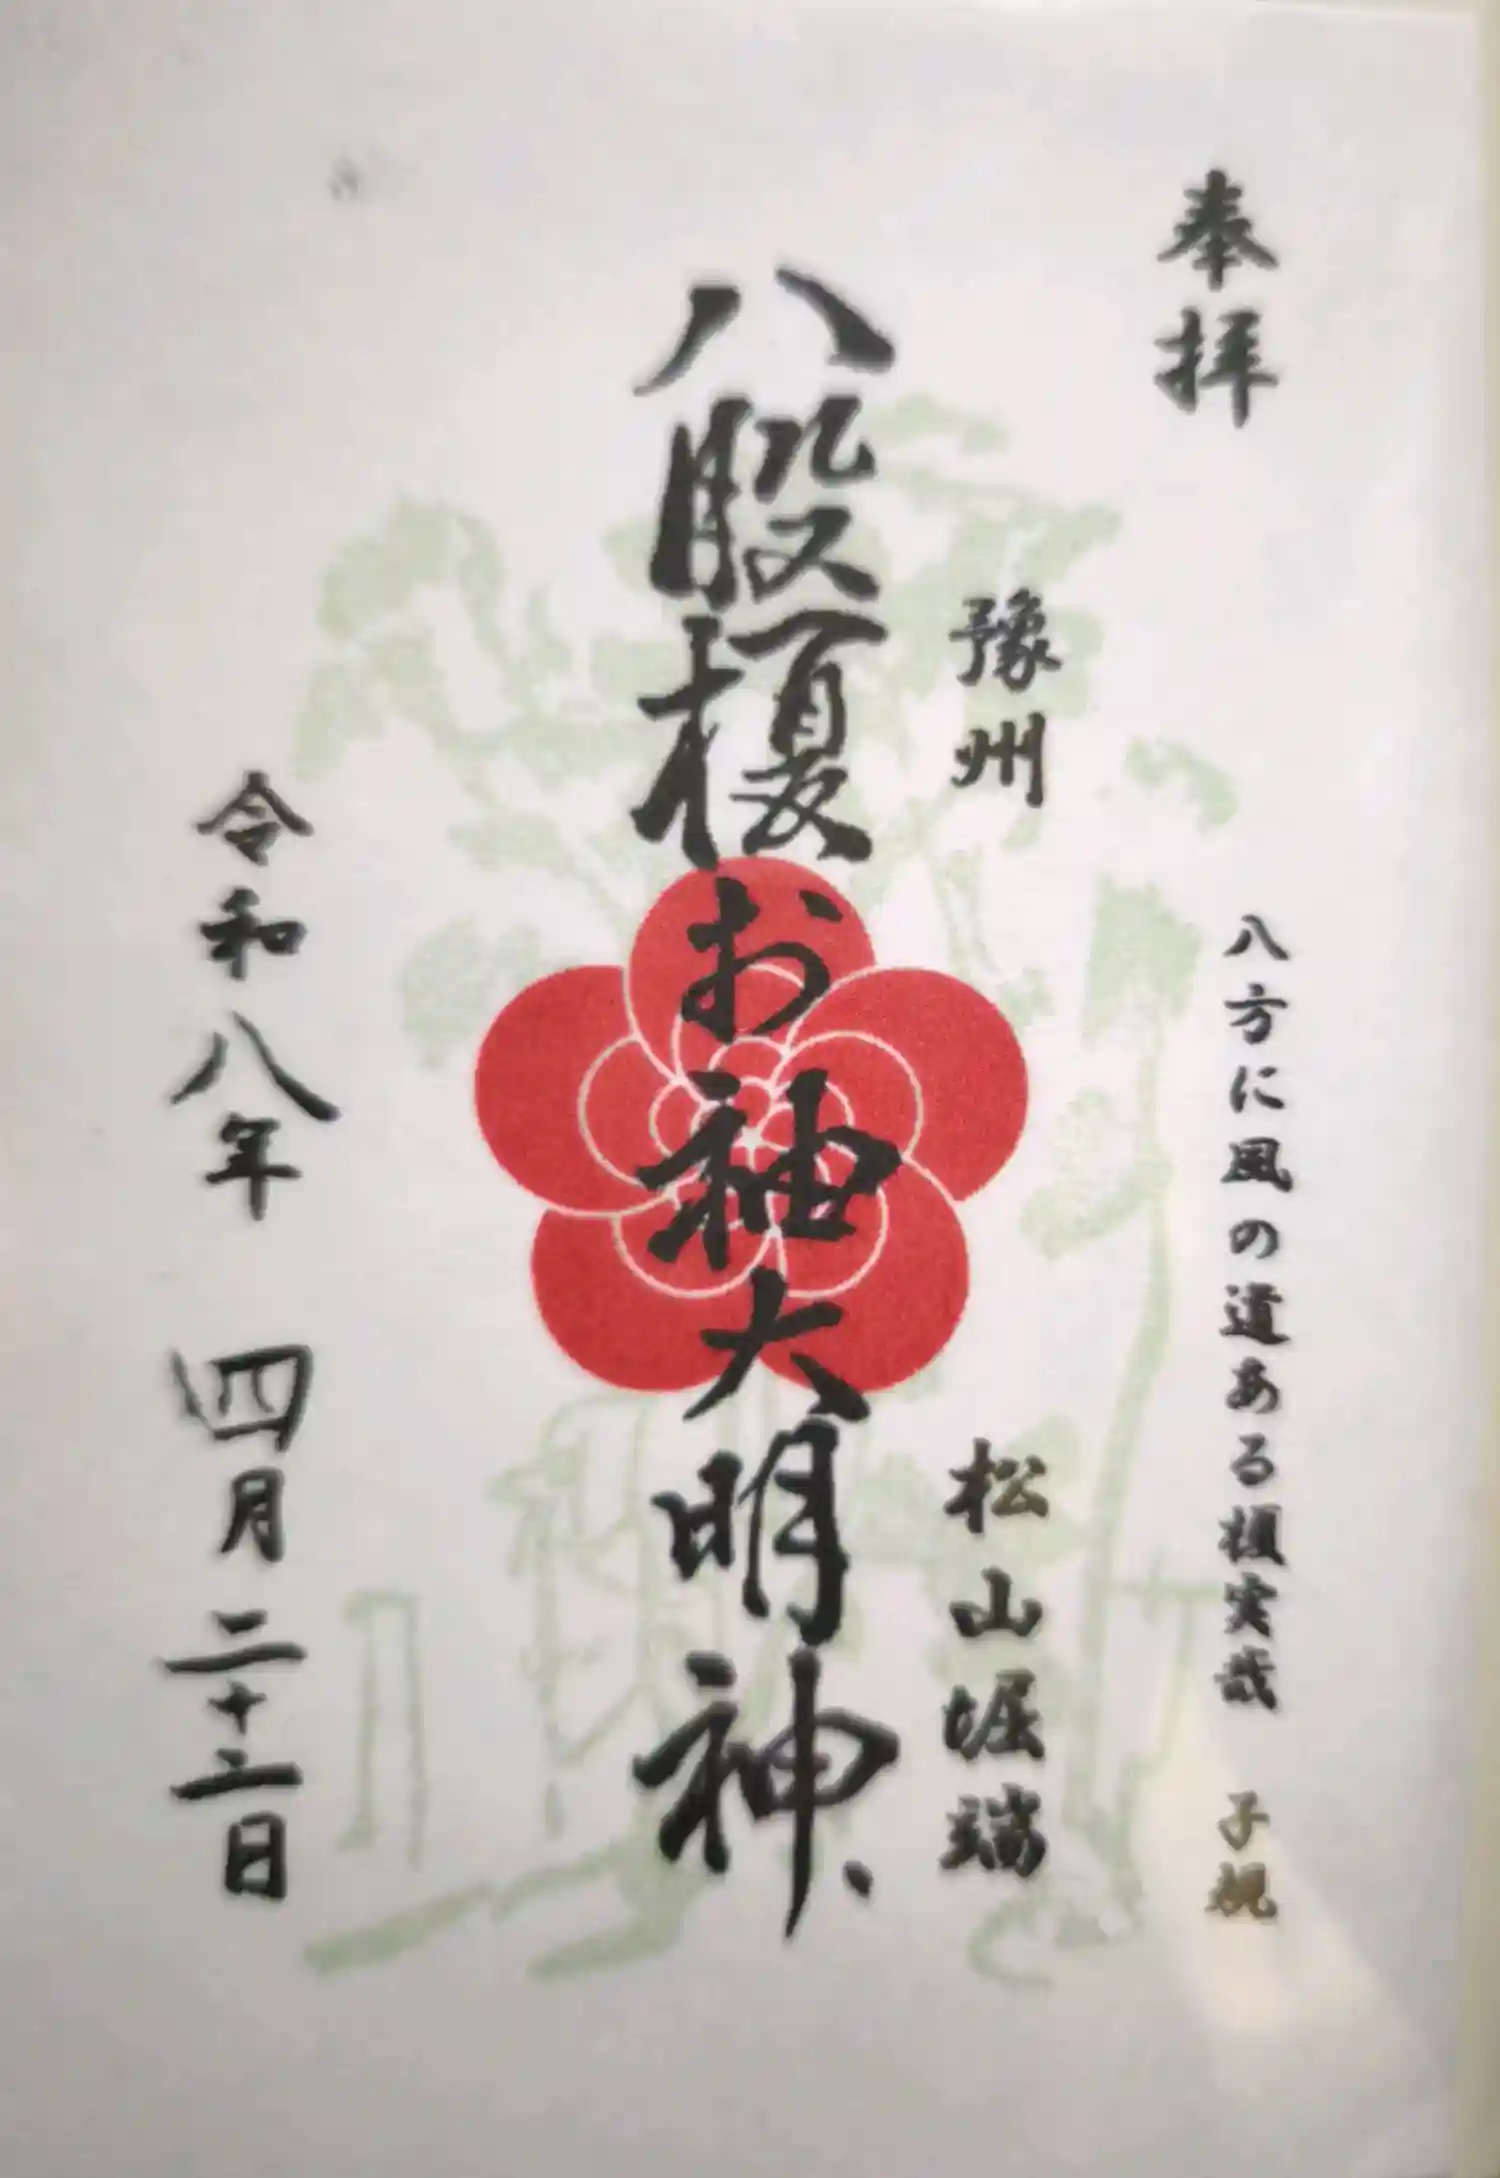 奉拝
八方に風の道ある榎実哉 子規
豫州 松山堀端
八股榎お袖大明神
令和八年 四月二十三日